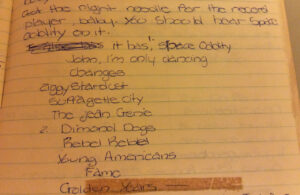 got the right needle for the record
player, baby. You should hear Space
oddity on it.
it has, 1. Space Oddity
John, I'm only dancing
Changes
ziggy stardust
suffragette city
The jean Genie
2. Dimond Dogs
Rebel Rebel
Young Americans
Fame
Golden Years